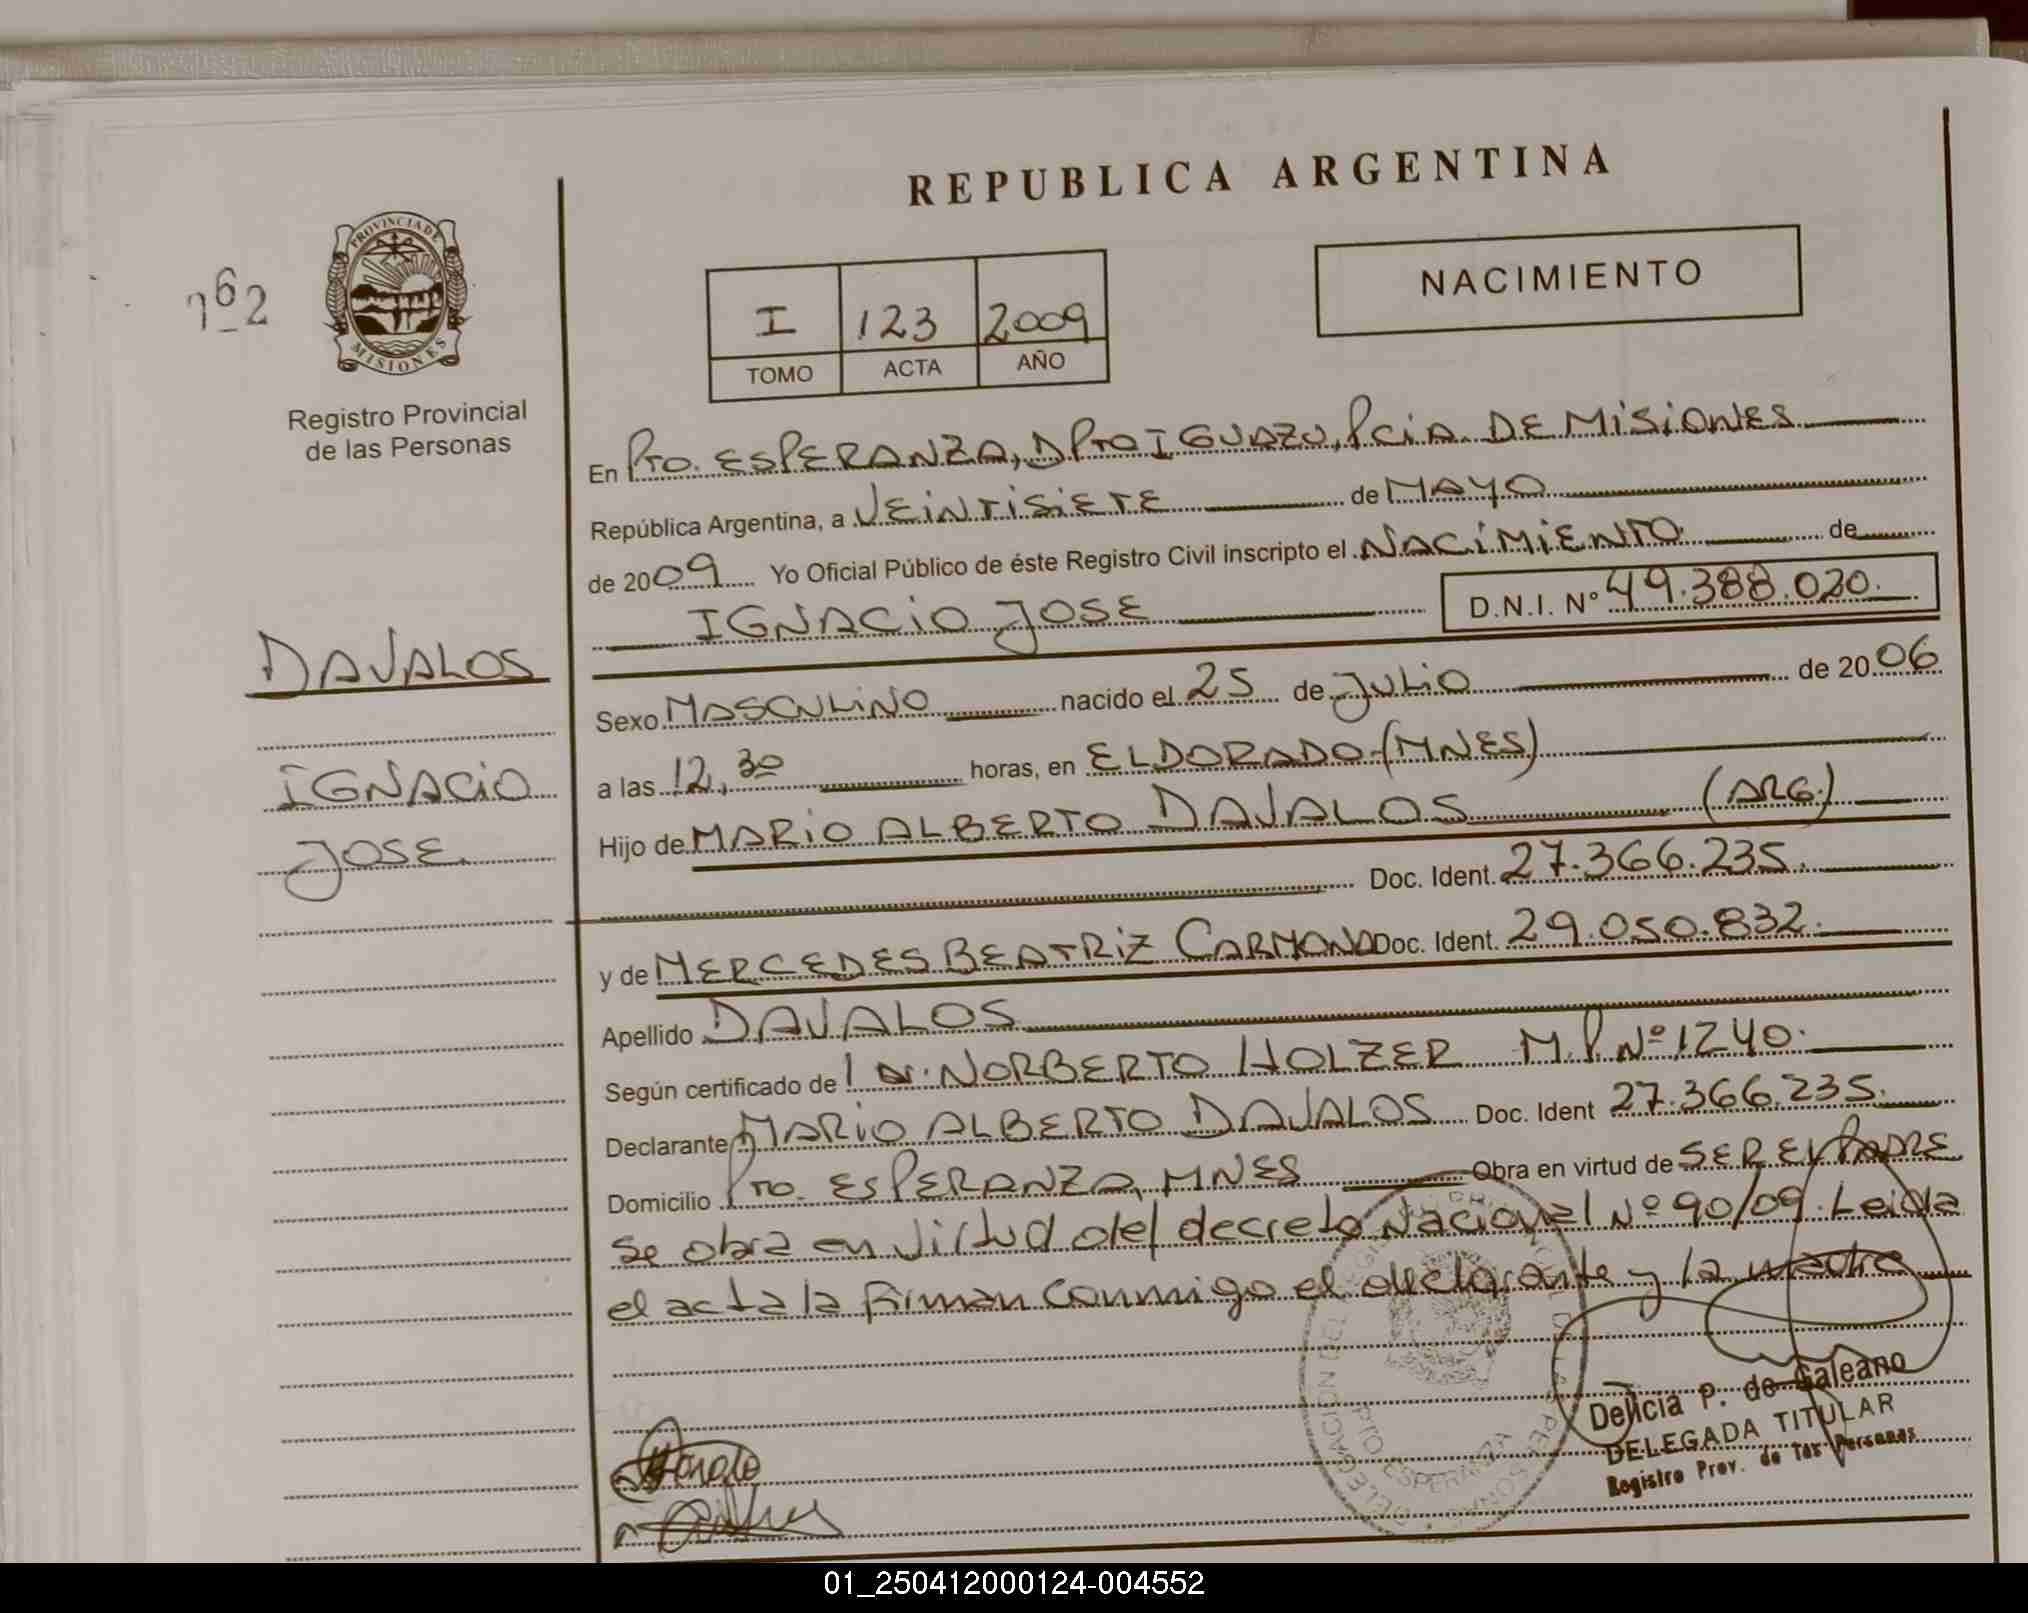 REPUBLICA ARGENTINA
NACIMIENTO
162
PROVINCIA DE
MISIONES
Registro Provincial
de las Personas
I 123 2009
TOMO ACTA AÑO
En Pto. ESPERANZA, DPTO IGUAZU, PCiA. DE MiSiONES
República Argentina, a VEiNTiSiETE de MAYO
de 2009 Yo Oficial Público de éste Registro Civil inscripto el NACiMiENTO de
IGNACiO JOSE D.N.I. Nº 49.388.020.
DAVALOS
IGNACiO
JOSE.
Sexo MASCULiNO nacido el 25 de JULiO de 2006
a las 12,30 horas, en ELDORADO-(MNES)
Hijo de MARiO ALBERTO DAVALOS (ARG.)
Doc. Ident. 27.366.235.
y de MERCEDES BEATRiZ CARMONA Doc. Ident. 29.050.832.
Apellido DAVALOS
Según certificado de NORBERTO HOLZER M.P.Nº 1240.
Declarante MARiO ALBERTO DAVALOS Doc. Ident 27.366.235.
Domicilio Pto. ESPERANZA, MNES Obra en virtud de SER EL PADRE
Se obra en virtud del decreto Nacional Nº 90/09. Leida
el acta la firman conmigo el declarante y la madre
PTO. ESPERANZA
Delicia P. de Galeano
DELEGADA TITULAR
Registro Prov. de las Personas
01_250412000124-004552